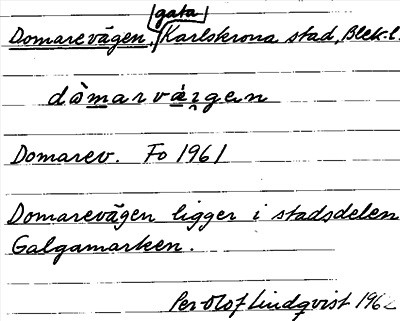 gata
Domarevägen, Karlskrona stad, Blek. l.
dòmarvä́gen
Domarev. Fo 1961
Domarevägen ligger i stadsdelen
Galgamarken.
Per-Olof Lindqvist 196